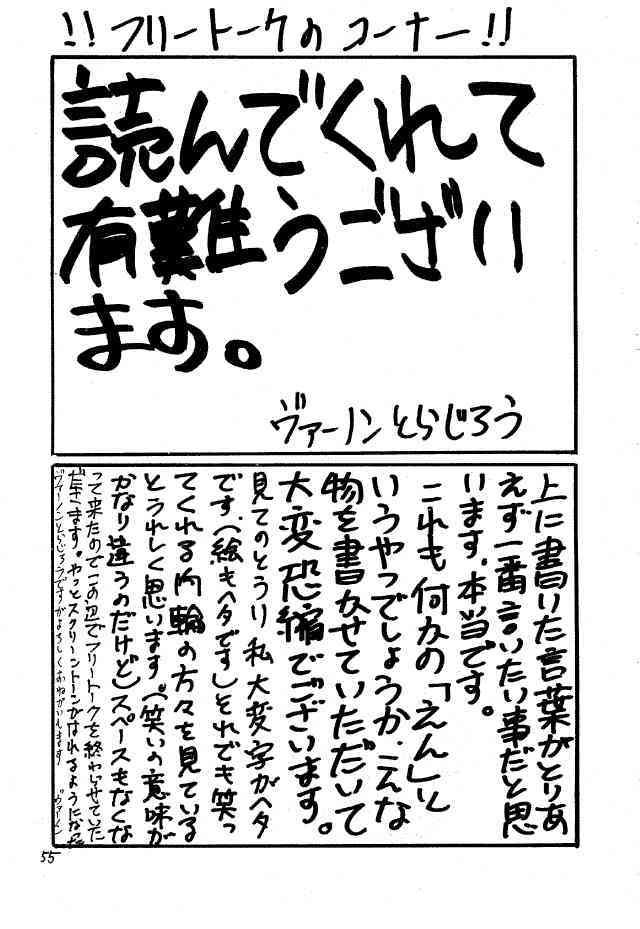 !!フリートークのコーナー!!
読んでくれて
有難うござい
ます。
ヴァーノンとらじろう
上に書いた言葉がとりあ
えず一番言いたい事だと思
います。本当です。
これも何かの「えん」と
いうやつでしょうか、こんな
物を書かせていただいて
大変恐縮でございます。
見てのとうり私大変字がヘタ
です。(絵もヘタです)それでも笑っ
てくれる内輪の方々を見ている
とうれしく思います。(笑いの意味が
かなり違うのだけど)スペースもなくな
って来たのでこの辺でフリートークを終わらせていた
だきます。やっとスクリーントーンがはれるようになった
ヴァーノンとらじろうですがよろしくおねがいします
55